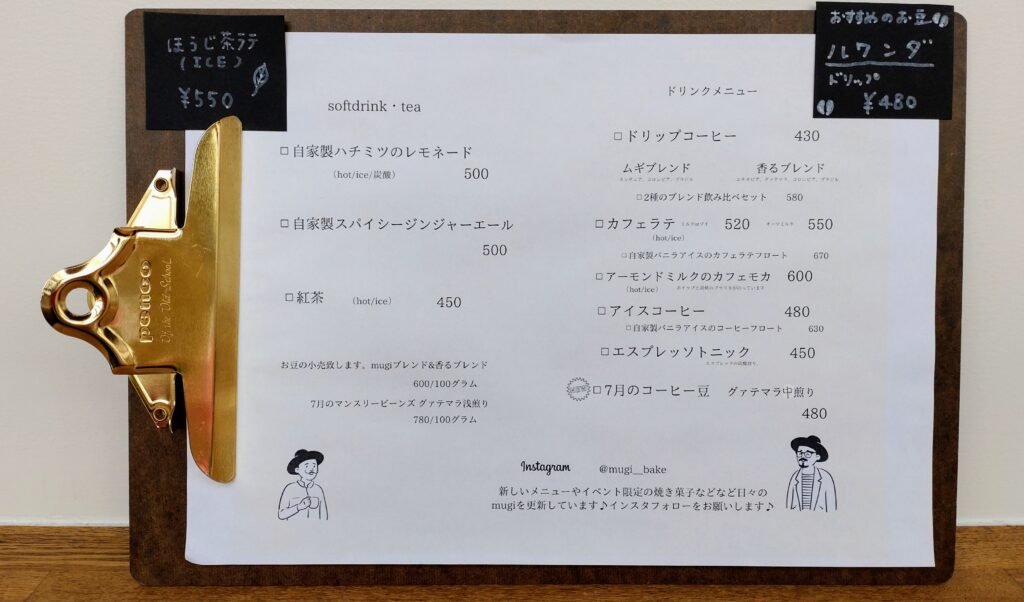 ほうじ茶ラテ
(ICE)
¥550
おすすめのお豆
ルワンダ
ドリップ
¥480
PENCO
Of the Old School
softdrink・tea
□自家製ハチミツのレモネード
(hot/ice/炭酸) 500
□自家製スパイシージンジャーエール
500
□紅茶 (hot/ice) 450
お豆の小売致します。mugiブレンド&香るブレンド
600/100グラム
7月のマンスリービーンズ グァテマラ浅煎り
780/100グラム
ドリンクメニュー
□ドリップコーヒー 430
ムギブレンド 香るブレンド
□2種のブレンド飲み比べセット 580
□カフェラテ 520 オーツミルク 550
(hot/ice)
□自家製バニラアイスのカフェラテフロート 670
□アーモンドミルクのカフェモカ 600
(hot/ice)
□アイスコーヒー 480
□自家製バニラアイスのコーヒーフロート 630
□エスプレッソトニック 450
□7月のコーヒー豆 グァテマラ中煎り
480
Instagram @mugi__bake
新しいメニューやイベント限定の焼き菓子などなど日々の
mugiを更新しています♪インスタフォローをお願いします♪